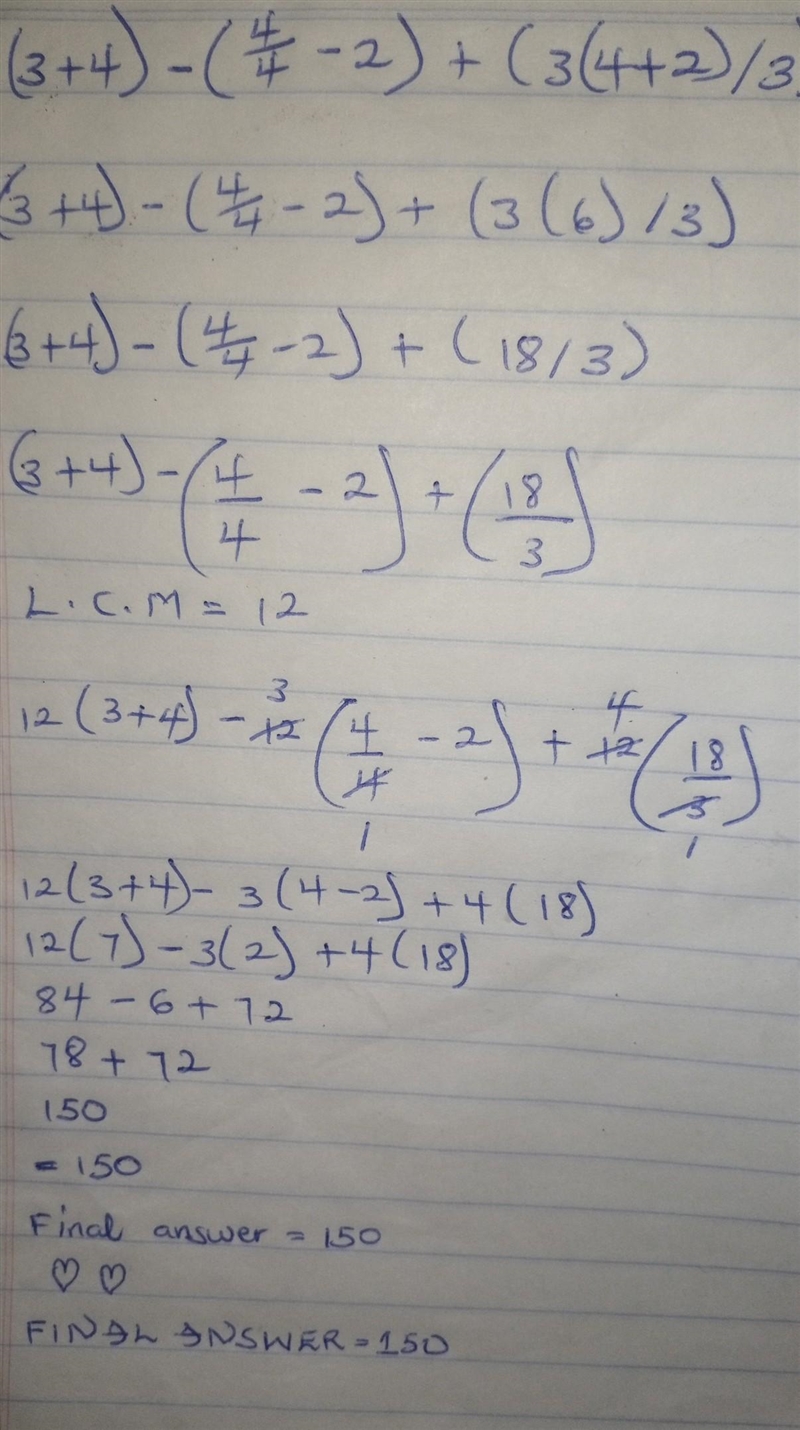 (3+4) - (4/4 - 2) + (3(4+2)/3)
(3+4) - (4/4 - 2) + (3(6)/3)
(3+4) - (4/4 - 2) + (18/3)
(3+4) - (4/4 - 2) + (18/3)
L.C.M = 12
12(3+4) - 12 3 (4/4 1 - 2) + 12 4 (18/3 1)
12(3+4) - 3(4-2) + 4(18)
12(7) - 3(2) + 4(18)
84 - 6 + 72
78 + 72
150
= 150
Final answer = 150
♡ ♡
FINAL ANSWER = 150